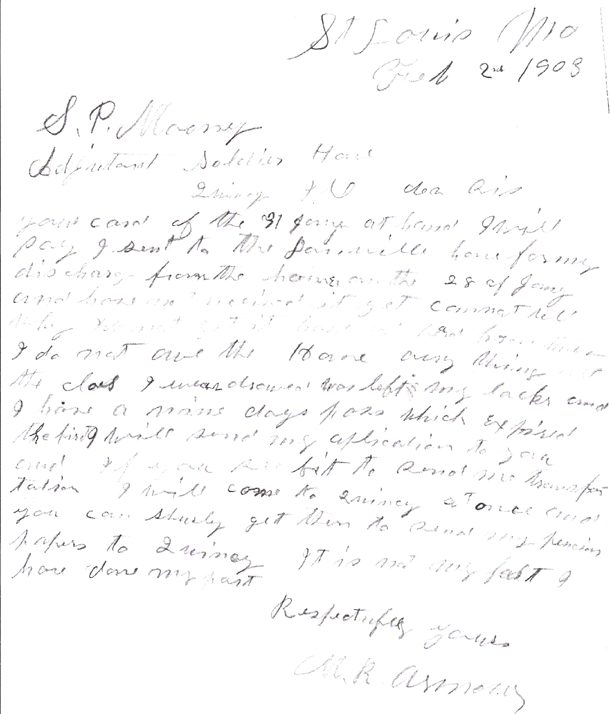 St Louis Mo
Feb 2nd 1903
S. P. Mooney
Adjutant Soldier Hom
Quincy Ill dea Sir
your card of the 31 Jany at hand I will
say I sent to the Danville home for my
discharge from the home on the 28 of Jany
and have not received it yet cannot tell
why not got it
I do not owe the Home any thing
the clos I was drawen was left in my lacks and
I have a nine days pass which expired
the first I will send my aplication to you
and if you see bit to send me transpor
tation I will come to Quincy at once and
you can sturly get them to send my pension
papers to Quincy It is not my falt I
have done my part
Respectfully yours
M. R. Armour